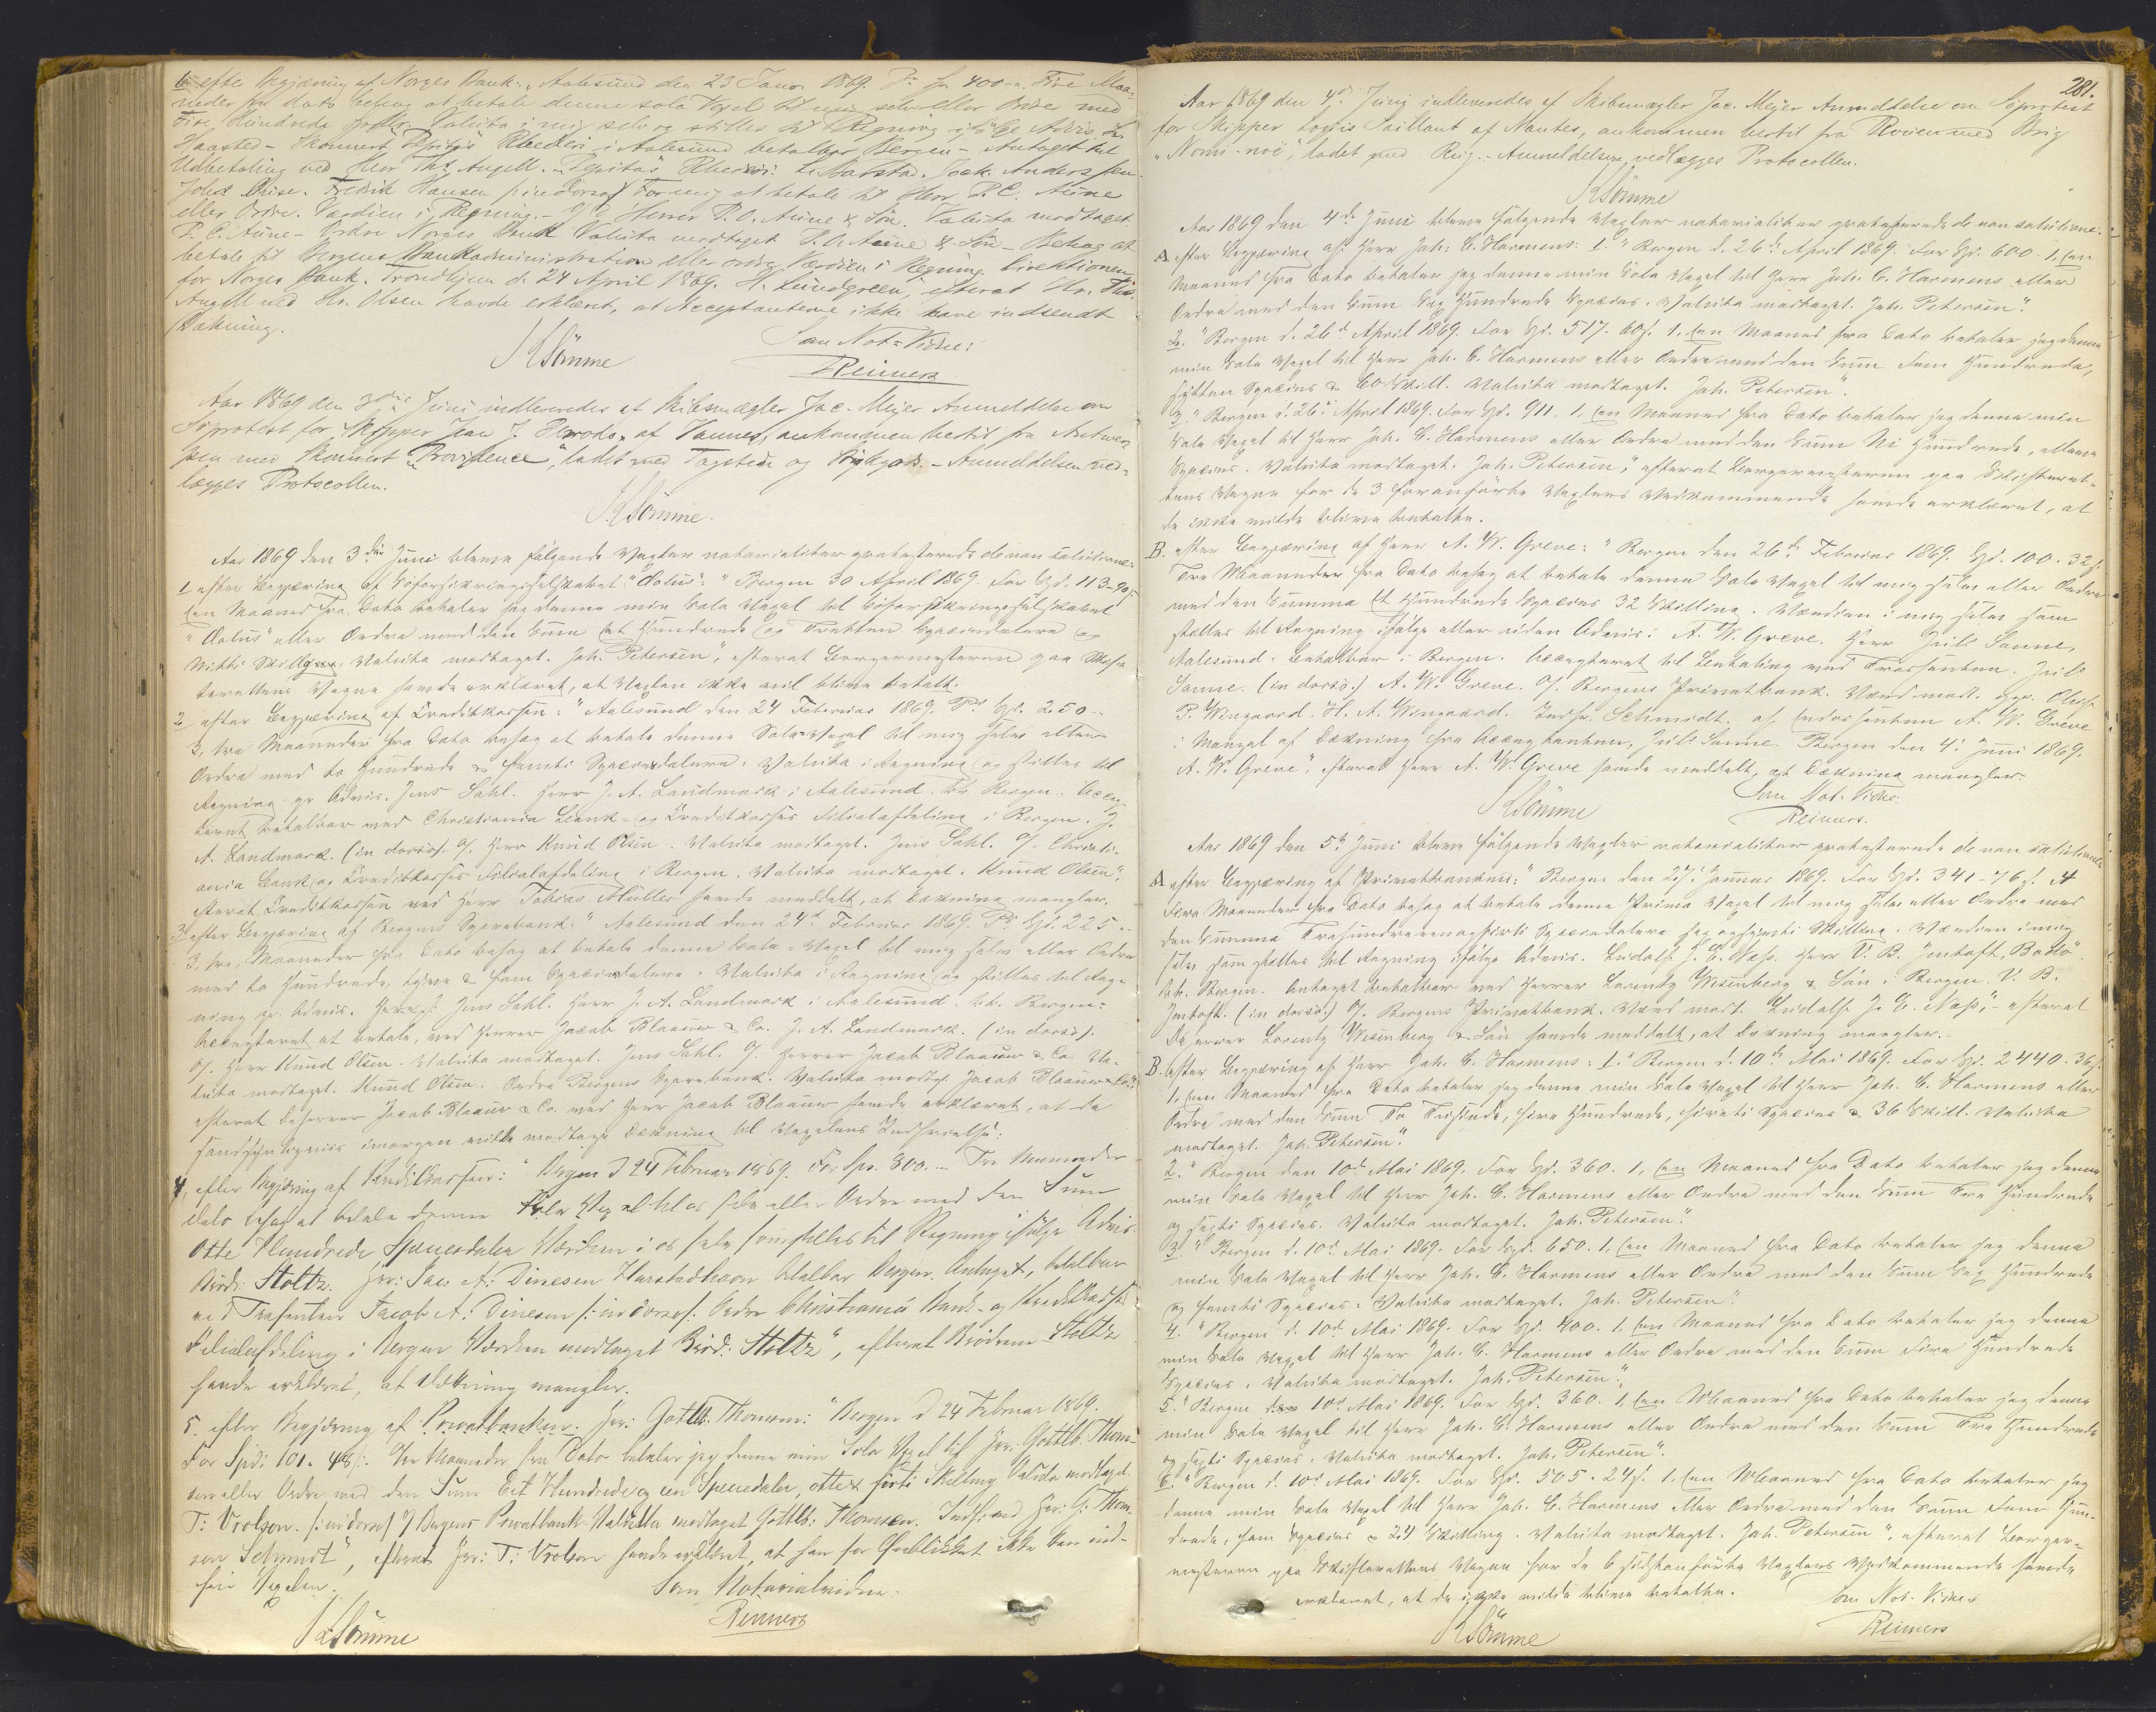 efter Begjæring af Norges Bank: "Aalesund den 23 Janr. 1869. Pr Sp. 400 – Fire Maa-
neder fra dato behag at betale denne sola Vexel til mig selv eller Ordre med
Fire Hundrede Spdlr. Valuta i mig selv og stilles til Regning ifølge Advis. L.
Haasted – Skonnert "Pepitas" Rhederi i Aalesund betalbar Bergen – Antaget til
Udbetaling ved Herr Ths. Angell. "Pepitas" Rhederi: L. Aarstad. Joak. Anderssen.
Johs. Frise. Fredrik Hansen (in dorso) For mig at betale til Herr P. C. Aune
eller Ordre. Værdien i Regning. – O/ Herrer P. O. Aune & Søn. Valuta modtaget.
P. C. Aune – Ordre Norges Bank Valuta modtaget P. O. Aune & Søn – Behag at
betale til Bergens Bankadministration eller ordre Værdien i Regning. Direktionen
for Norges Bank. Trondhjem d. 24 April 1869. H. Lundgreen", efterat Hr. Ths.
Angell ved Hr. Olsen havde erklæret, at Acceptanterne ikke have indsendt
Dækning.
Som Not: Vidne:
KSömme
Reimers
Aar 1869 den 3die Juni indleveredes af Skibsmægler Jac. Mejer Anmeldelse om
Söprotest for Skipper Jean J. af Vannes, ankommen hertil fra Antwer-
pen med Skonnert "Providence", ladet med Tagsteen og Stykgods. – Anmeldelsen ved-
lægges Protocollen.
KSömme.
Aar 1869 den 3die Juni bleve følgende Vexler notarialiter protesterede de non solutione:
1 efter Begjæring af Söforsikringsselskabet "Æolus": "Bergen 30 April 1869. For Spd. 113-90 s.
Een Maaned fra Dato betaler jeg denne min Sola Vexel til Söforsikringsselskabet
"Æolus" eller Ordre med den Sum Eet Hundrede og Tretten Speciedalere og
Nitti Skilling. Valuta modtaget. Joh. Petersen", efterat Borgermesteren paa Skifte-
rettens Vegne havde erklæret, at Vexlen ikke vil blive betalt.
2 efter Begjæring af Creditkassen: "Aalesund den 24 Februar 1869. Pr Spd. 250 –
3, tre Maaneder fra Dato behag at betale denne Sola-Vexel til mig selv eller
Ordre med to Hundrede & femti Speciedalere. Valuta i Regning og stilles til
Regning pr Advis. Jens Dahl. Herr J. A. Landmark i Aalesund. btb. Bergen. Accep-
teret betalbar ved Christiania Bank- og Creditkasses Filialafdeling i Bergen. J.
A. Landmark. (in dorso). O/ Herr Knud Olsen. Valuta modtaget. Jens Dahl. O/ Christi-
ania Bank og Creditkasses Filialafdeling i Bergen. Valuta modtaget. Knud Olsen",
efterat Creditkassen ved Herr Tobias Müller havde meddelt, at Dækning mangler.
3 efter Begjæring af Bergens Sparebank: "Aalesund den 24de Februar 1869. Pr Spd. 225 –
3, tre, Maaneder fra Dato behag at betale denne Sola-Vexel til mig selv eller Ordre
med to Hundrede, tyve & fem Speciedalere. Valuta i Regning og stilles til Reg-
ning pr. Advis. Jens Dahl. Herr J. A. Landmark i Aalesund. btb. Bergen:
Accepteret at betale, ved Herrer Jacob Blaauw & Co. J. A. Landmark. (in dorso).
O/ Herr Knud Olsen. Valuta modtaget. Jens Dahl. O/ Herrer Jacob Blaauw & Co. Va-
luta modtaget. Knud Olsen. Ordre Bergens Sparebank. Valuta modtgt. Jacob Blaauw & Co."
efterat Dherrer Jacob Blaauw & Co. ved Herr Jacob Blaauw havde erklæret, at de
sandsynligviis imorgen vilde modtage Dækning til Vexelens Indfrielse:
4, efter Begjæring af Creditkassen: "Bergen d 24 Februar 1869. For Sps. 800. – Tre Maaneder
dato behag at betale denne Sola Vexel til os selv eller Ordre med den Sum
Otte Hundrede Speciesdaler Værdien i os selv som stilles til Regning ifølge Advis
Brödr: Stoltz. Hr: Jac A: Dinesen Harstadhavn betalbar Bergen. Antaget, betalbar
ved Trasenten Jacob A: Dinesen /: in dorso/: Ordre Christiania Bank- og Kreditkasse
Filialafdeling i Bergen Værdien modtaget Bröd: Stoltz", efterat Brödrene Stoltz
havde erklæret, at Dækning mangler.
5. efter Begjæring af Privatbanken. Hr: Gottlb. Thomsen: "Bergen d 24 Februar 1869.
For Spd: 101. 48 s. Tre Maaneder fra Dato betaler jeg denne min Sola Vexel til Hr: Gottlb. Thom-
sen eller Ordre med den Sum Eet Hundrede og een Speciedaler, otte & förti Skilling Valuta modtaget.
T: Vrolsen. /: in dorso/ O/ Bergens Privatbank Valuta modtaget Gottlb: Thomsen. Indfr: ved Hr: G: Thom-
sen Schmidt", efterat Hr: T: Vrolsen havde erklæret, at han for Øieblikket ikke kan ind-
frie Vexelen.
Som Notarialvidne:
KSömme
Reimers
281.
Aar 1869 den 4de Juni indleveredes af Skibsmægler Jac. Mejer Anmeldelse om Söprotest
for Skipper Louis Saillant af Nantes, ankommen hertil fra Rouen med Brig
"Nomi-noë", ladet med Rug. – Anmeldelsen vedlægges Protocollen.
KSömme
Aar 1869 den 4de Juni bleve følgende Vexler notarialiter protesterede de non solutione:
A efter Begjæring af Herr Joh: C. Harmens: 1. "Bergen d. 26de April 1869. For Spd. 600. 1, Een
Maaned fra Dato betaler jeg denne min Sola Vexel til Herr Joh. C. Harmens eller
Ordre med den Sum Sex Hundrede Species. Valuta modtaget. Joh. Petersen".
2. "Bergen d. 26d April 1869. For Spd. 517. 60 s. 1, Een Maaned fra Dato betaler jeg denne
min Sola Vexel til Herr Joh. C. Harmens eller Ordre med den Sum Fem Hundrede,
sytten Species & 60 Skill. Valuta modtaget. Joh. Petersen".
3. "Bergen d. 26d April 1869. For Spd. 911. 1, Een Maaned fra Dato betaler jeg denne min
Sola Vexel til Herr Joh. C. Harmens eller Ordre med den Sum Ni Hundrede, elleve
Species. Valuta modtaget. Joh. Petersen", efterat Borgermesteren paa Skifteret-
tens Vegne for de 3 foranførte Vexlers Vedkommende havde erklæret, at
de ikke vilde blive betalte.
B. efter Begjæring af Herr A. W. Greve: "Bergen den 26de Februar 1869. Spd. 100. 32 s.
Tre Maaneder fra Dato behag at betale denne Sola Vexel til mig selv eller Ordre
med den Summa Et Hundrede Species 32 Skilling. Værdien i mig selv som
stilles til Regning ifølge eller uden Advis: A. W. Greve. Herr Juls Sanne,
Aalesund. Betalbar i Bergen. Accepteret til Betaling ved Trassenten. Juls
Sanne. (in dorso.) A. W. Greve. O/ Bergens Privatbank. Værd modt. ppr. Olaf
P. Wingaard. H. A. Wingaard. Indfr. Schmidt. af Endossenten A. W. Greve
i Mangel af Dækning fra Acceptanten, Juls Sanne. Bergen den 4de Juni 1869.
A. W. Greve", efterat Herr A. W. Greve havde meddelt, at Dækning mangler.
Som Not: Vidne:
KSömme
Reimers.
Aar 1869 den 5te Juni bleve følgende Vexler notarialiter protesterede de non solutione
A efter Begjæring af Privatbanken: "Bergen den 27de Januar 1869. For Spd. 341-76 s. 4
Fire Maaneder fra Dato behag at betale denne Prima Vexel til mig selv eller Ordre med
den Summa Trehundreeenogfirti Speciedalere sex og sytti Skilling. Værdien i mig
selv som stilles til Regning ifølge Advis. Ludolf J. C. Næss. Herr V. B. Jentoft, Bodö.
btb. Bergen. Antaget betalbar ved Herrer Lorentz Wesenberg & Sön i Bergen. V. B.
Jentoft. (in dorso.) O/ Bergens Privatbank. Værd modt. Ludolf J. C. Næss", – efterat
Dherrer Lorentz Wesenberg & Sön havde meddelt, at Dækning mangler. –
B. efter Begjæring af Herr Joh. C. Harmens: 1. "Bergen d. 10de Mai 1869. For Spd. 2440. 36 s.
1, Een Maaned fra Dato betaler jeg denne min Sola Vexel til Herr Joh. C. Harmens eller
Ordre med den Sum To Tusinde, fire Hundrede, fireti Species & 36 Skill. Valuta
modtaget. Joh. Petersen".
2. "Bergen den 10de Mai 1869. For Spd. 360. 1, Een Maaned fra Dato betaler jeg denne
min Sola Vexel til Herr Joh. C. Harmens eller Ordre med den Sum Tre Hundrede
og sexti Species. Valuta modtaget. Joh. Petersen".
3. "Bergen d. 10de Mai 1869. For Spd. 650. 1, Een Maaned fra Dato betaler jeg denne
min Sola Vexel til Herr Joh. C. Harmens eller Ordre med den Sum Sex Hundrede
og femti Species. Valuta modtaget. Joh. Petersen".
4. "Bergen d. 10de Mai 1869. For Spd. 400. 1, Een Maaned fra Dato betaler jeg denne
min Sola Vexel til Herr Joh. C. Harmens eller Ordre med den Sum Fire Hundrede
Species. Valuta modtaget. Joh. Petersen".
5. "Bergen den 10de Mai 1869. For Spd. 360. 1, Een Maaned fra Dato betaler jeg denne
min Sola Vexel til Herr Joh. C. Harmens eller Ordre med den Sum Tre Hundrede
og sexti Species. Valuta modtaget. Joh. Petersen".
6. "Bergen d. 10de Mai 1869. For Spd. 505. 24 s. 1, Een Maaned fra Dato betaler jeg
denne min Sola Vexel til Herr Joh. C. Harmens eller Ordre med den Sum Fem Hun-
drede, fem Species & 24 Skilling. Valuta modtaget. Joh. Petersen", efterat Borger-
mesteren paa Skifterettens Vegne for de 6 sidstanførte Vexlers Vedkommende havde
erklæret, at de ikke vilde blive betalte.
Som Not. Vidne
KSömme
Reimers